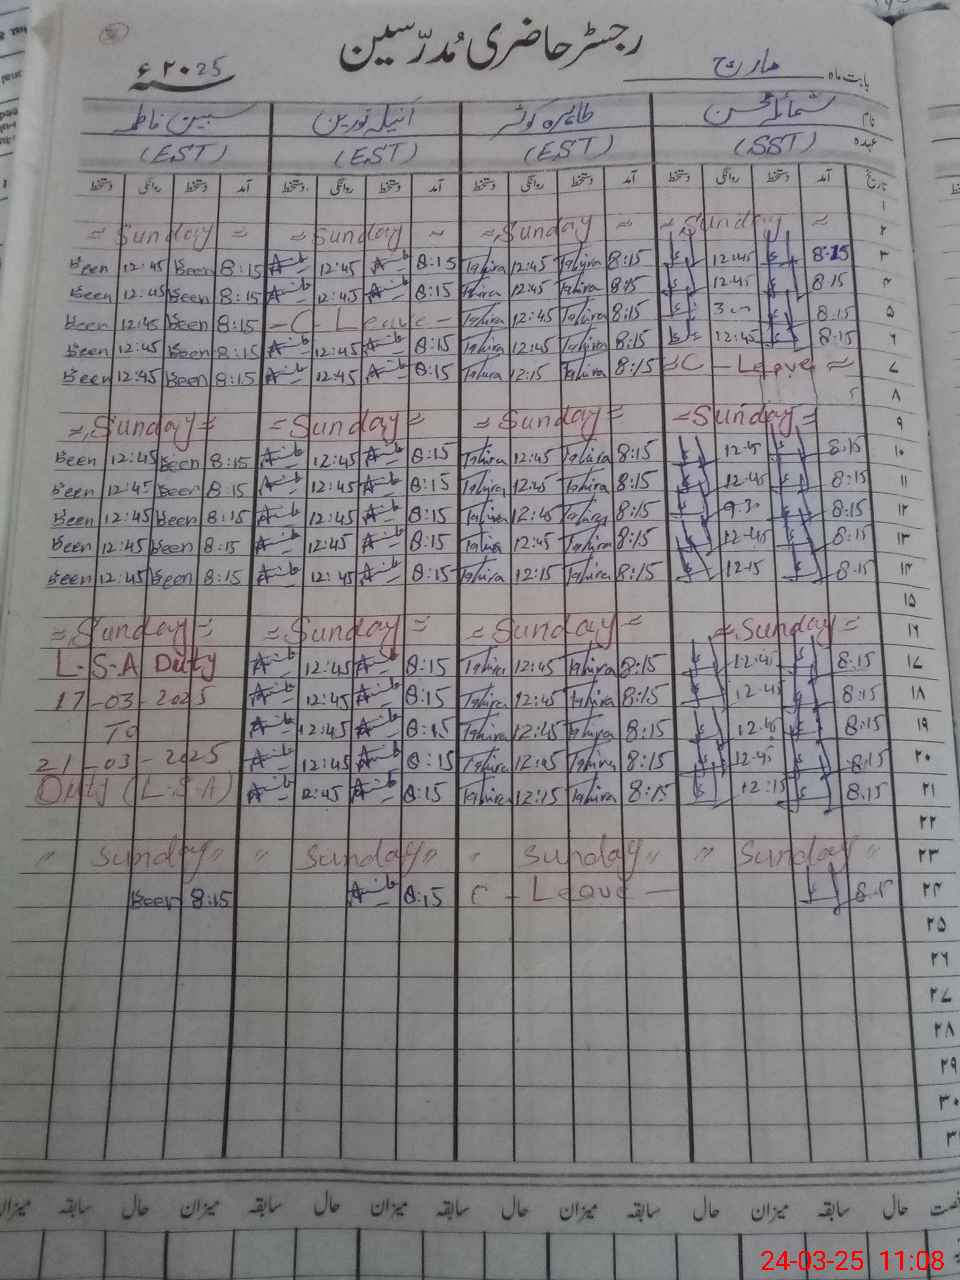 رجسٹر حاضری مُدرّسین
بابت ماہ مارچ ۲۰25ء
نام شمائلہ محسن طاہرہ کوثر انیلہ نورین سبین فاطمہ
عہدہ (SST) (EST) (EST) (EST)
تاریخ آمد دستخط روانگی دستخط آمد دستخط روانگی دستخط آمد دستخط روانگی دستخط آمد دستخط روانگی دستخط
۱
۲ = Sunday = = Sunday ~ = Sunday = = Sunday =
۳ Been 12:45 Been 8:15 12:45 8:15 Tahira 12:45 Tahira 8:15 12:45 8:15
۴ Been 12:45 Been 8:15 12:45 8:15 Tahira 12:45 Tahira 8:15 12:45 8:15
۵ Been 12:45 Been 8:15 - C - Leave - Tahira 12:45 Tahira 8:15 8:15
۶ Been 12:45 Been 8:15 12:45 8:15 Tahira 12:45 Tahira 8:15 12:45 8:15
۷ Been 12:45 Been 8:15 12:45 8:15 Tahira 12:15 Tahira 8:15 = C - Leave =
۸
۹ = Sunday = = Sunday = = Sunday = = Sunday =
۱۰ Been 12:45 Been 8:15 12:45 8:15 Tahira 12:45 Tahira 8:15 12:45 8:15
۱۱ Been 12:45 Been 8:15 12:45 8:15 Tahira 12:45 Tahira 8:15 12:45 8:15
۱۲ Been 12:45 Been 8:15 12:45 8:15 Tahira 12:45 Tahira 8:15 9:30 8:15
۱۳ Been 12:45 Been 8:15 12:45 8:15 Tahira 12:45 Tahira 8:15 12:45 8:15
۱۴ Been 12:45 Been 8:15 12:45 8:15 Tahira 12:15 Tahira 8:15 12:15 8:15
۱۵
۱۶ = Sunday = = Sunday = = Sunday = = Sunday =
۱۷ L-S-A Duty 12:45 8:15 Tahira 12:45 Tahira 8:15 12:45 8:15
۱۸ 17-03-2025 12:45 8:15 Tahira 12:45 Tahira 8:15 12:45 8:15
۱۹ To 12:45 8:15 Tahira 12:45 Tahira 8:15 12:45 8:15
۲۰ 21-03-2025 12:45 8:15 Tahira 12:45 Tahira 8:15 12:45 8:15
۲۱ Duty (L-S-A) 12:45 8:15 Tahira 12:15 Tahira 8:15 12:15 8:15
۲۲
۲۳ " Sunday " " Sunday " " Sunday " " Sunday "
۲۴ Been 8:15 8:15 C - Leave - 8:15
۲۵
۲۶
۲۷
۲۸
۲۹
۳۰
۳۱
حال سابقہ میزان حال سابقہ میزان حال سابقہ میزان حال سابقہ میزان
24-03-25 11:08